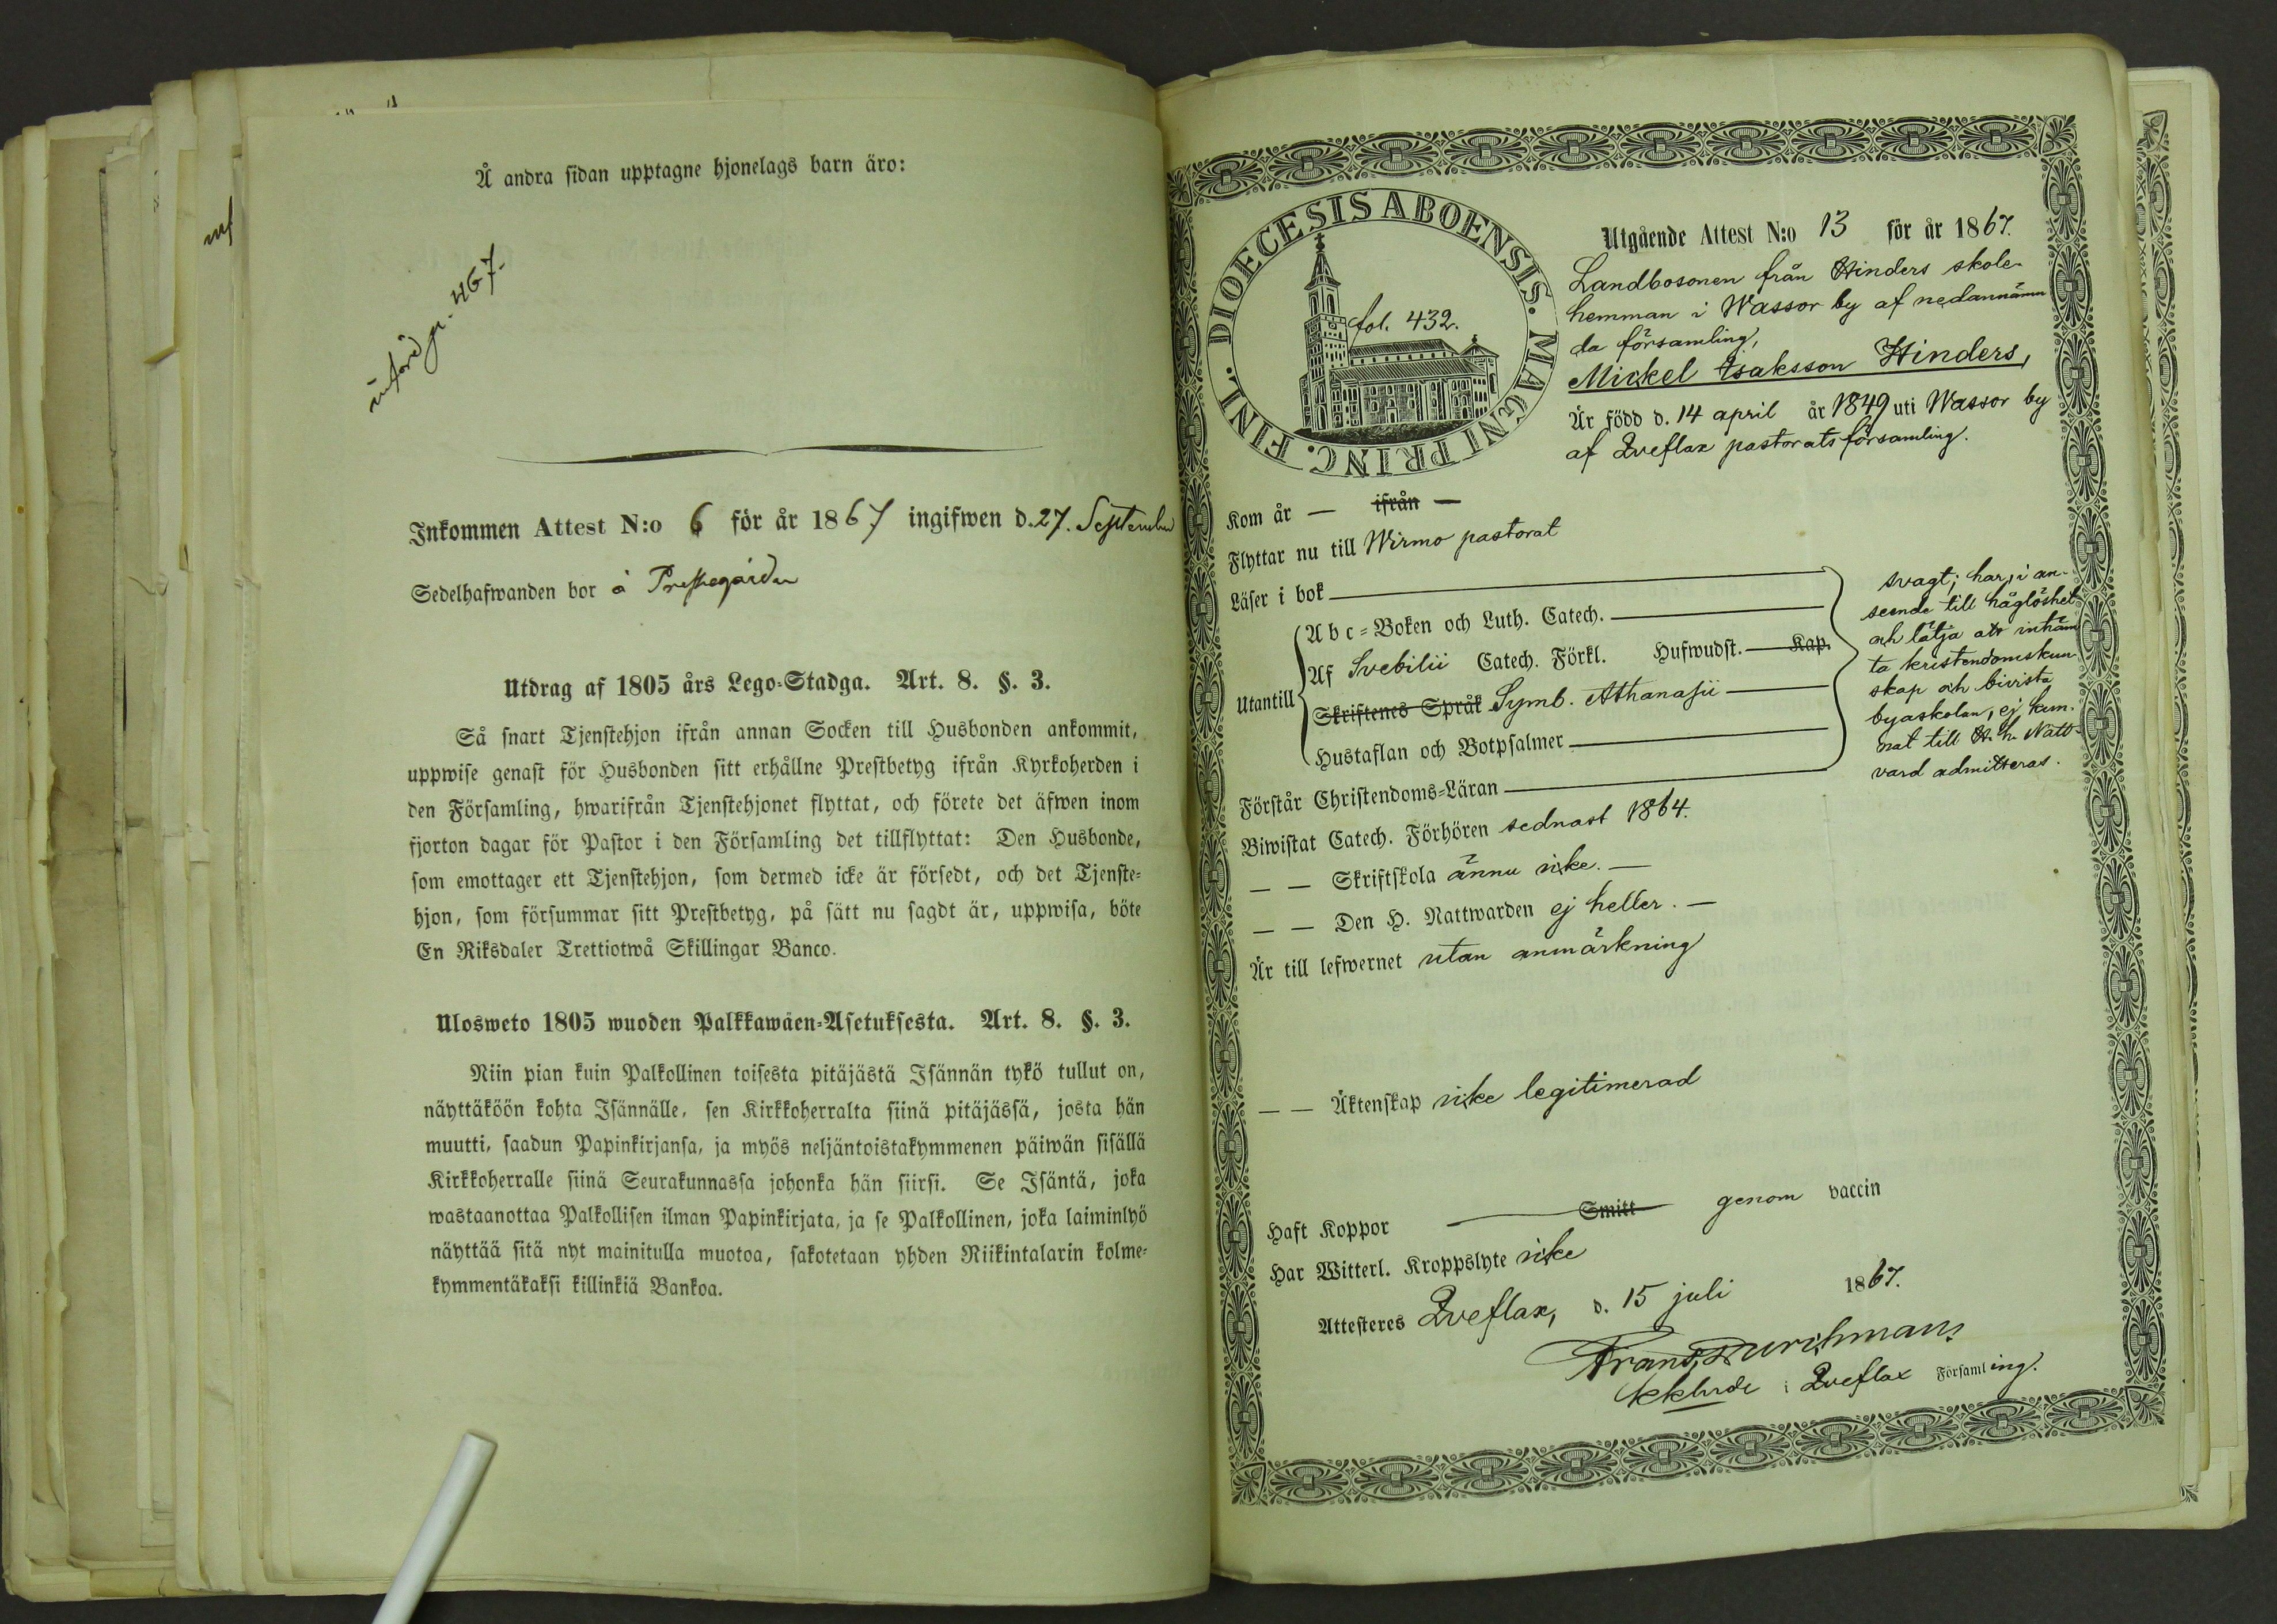 Å andra sidan upptagne hjonelags barn äro:
införd p. 467.
Inkommen Attest N:o 6 för år 1867 ingifwen d. 27. September
Sedelhafwanden bor å Prestegården
Utdrag af 1805 års Lego-Stadga. Art. 8. §. 3.
Så snart Tjenstehjon ifrån annan Socken till Husbonden ankommit,
uppwise genast för Husbonden sitt erhållne Prestbetyg ifrån Kyrkoherden i
den Församling, hwarifrån Tjenstehjonet flyttat, och förete det äfwen inom
fjorton dagar för Pastor i den Församling det tillflyttat: Den Husbonde,
som emottager ett Tjenstehjon, som dermed icke är försedt, och det Tjenste-
hjon, som försummar sitt Prestbetyg, på sätt nu sagdt är, uppwisa, böte
En Riksdaler Trettiotwå Skillingar Banco.
Ulosweto 1805 wuoden Palkkawäen-Asetuksesta. Art. 8. §. 3.
Niin pian kuin Palkollinen toisesta pitäjästä Isännän tykö tullut on,
näyttäköön kohta Isännälle, sen Kirkkoherralta siinä pitäjässä, josta hän
muutti, saadun Papinkirjansa, ja myös neljäntoistakymmenen päiwän sisällä
Kirkkoherralle siinä Seurakunnassa johonka hän siirsi. Se Isäntä, joka
wastaanottaa Palkollisen ilman Papinkirjata, ja se Palkollinen, joka laiminlyö
näyttää sitä nyt mainitulla muotoa, sakotetaan yhden Riikintalarin kolme-
kymmentäkaksi killinkiä Bankoa.
DIOECESIS ABOENSIS. MAGNI PRINC. FINL.
fol. 432.
Utgående Attest N:o 13 för år 1867.
Landbosonen från Hinders skole-
hemman i Wassor by af nedannämn
da församling,
Mickel Isaksson Hinders,
Är född d. 14 april år 1849 uti Wassor by
af Qveflax pastorats församling.
Kom år — ifrån —
Flyttar nu till Wirmo pastorat
Läser i bok
Utantill
A b c-Boken och Luth. Catech.
Af Svebilii Catech. Förkl. Hufwudst. Kap.
Skriftenes Språk Symb. Athanasii
Hustaflan och Botpsalmer
Förstår Christendoms-Läran
svagt; har, i an-
seende till håglöshet
och lätja att inhäm
ta kristendomskun
skap och bivista
byaskolan, ej kun-
nat till H. h. Natt-
vard admitteras.
Biwistat Catech. Förhören sednast 1864.
— — Skriftskola ännu icke. —
— — Den H. Nattwarden ej heller. —
Är till lefwernet utan anmärkning
— — Äktenskap icke legitimerad
Haft Koppor Smitt genom vaccin
Har Witterl. Kroppslyte icke
Attesteres Qveflax, d. 15 juli 1867.
Frans Durchman
Kkhrde i Qveflax Församling.